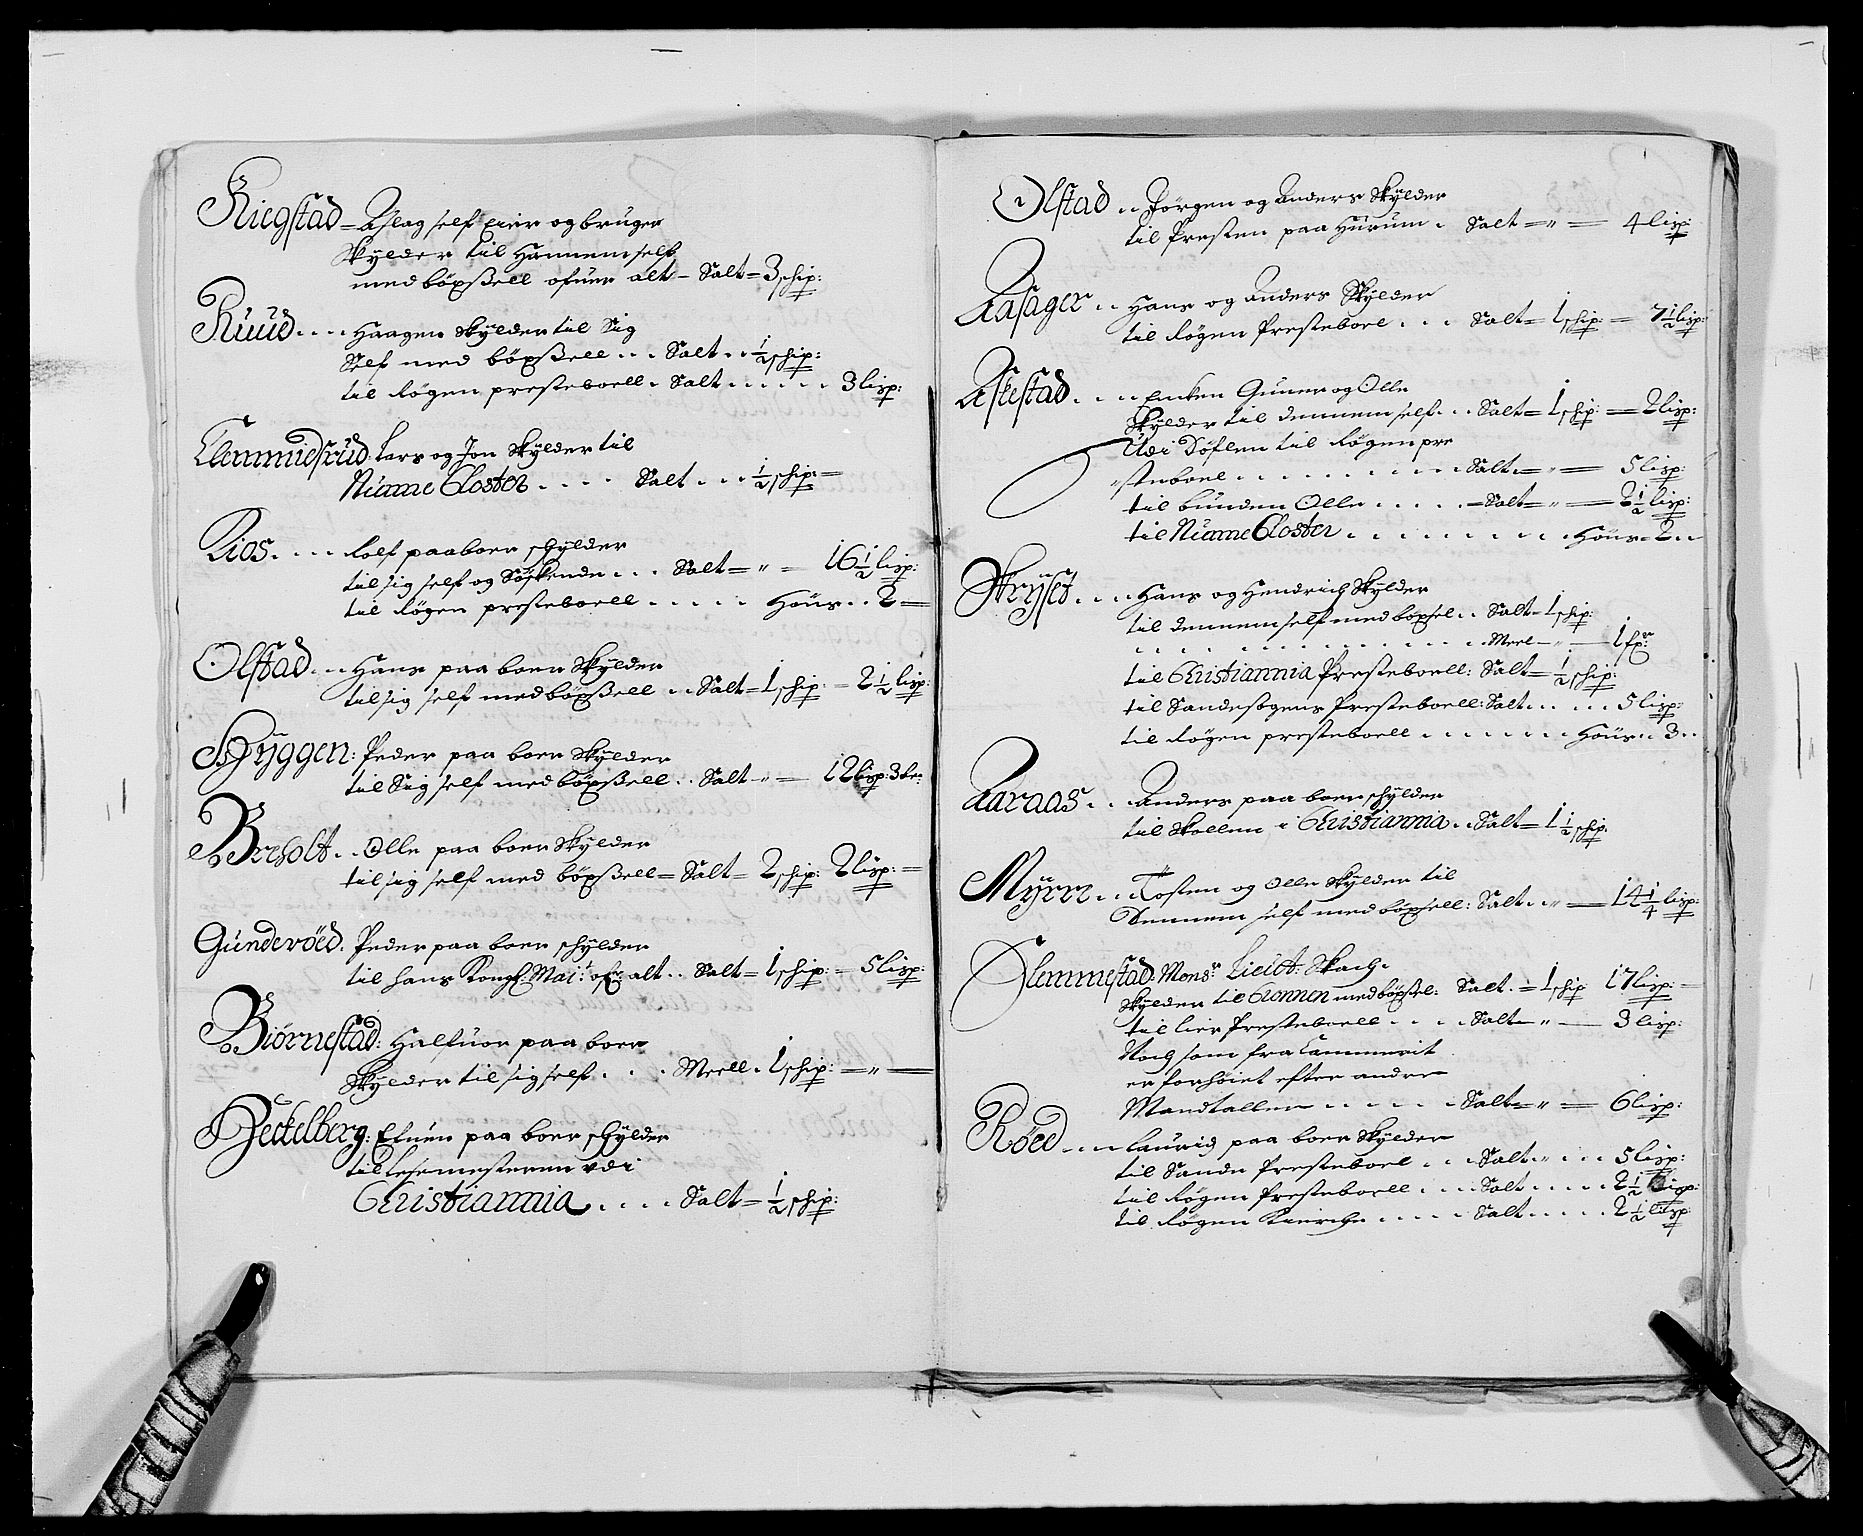 Kiegstad = Aslag self Eier og bruger
Skylder til Hannem self
med böxßell ofuer alt – Salt = 3 schip:
Ruud .... Haagen Skylder til Sig
Self med böxßell ... Salt .. ½ schip:
til Røgen presteboell . Salt ..... 3 lisp:
Clemmidsrud: Lars og Jon Skylder til
Nunne Closter .... Salt ... ½ schip: =
Kios .... Rolf paaboer schylder
til sig self og Søskende ... Salt = " = 16½ lisp:
til Røgen presteboell ..... Høns .. 2 =
Olstad ... Hans paa boer Skylder
til sig self med böxßell .. Salt = 1 schip: = 2½ lisp:
Hyggen: Peder paa boer Skylder
til Sig self med böxßell .. Salt " = 12 lisp: 3 be:
Breholt .. Olle paa boer Skylder
til sig self med böxßell = Salt = 2 schip: 2 lisp: =
Gunderöed. Peder paa boer schylder
til hans Kongl: Mai:t ofr alt .. Salt = 1 schip: = 5 lisp:
Biørnestad: Halfuor paa boer
Skylder til sig self .... Meell . 1 schip: = " =
Heckelberg: Efuen paa boer schylder
til Lesemesteren udi
Christiannia .... Salt = ½ schip:
Olstad .. Jörgen og Anders Skylder
til Presten paa Hurum . Salt = " = 4 lisp:
Aasager .. Hans og Anders Skylder
til Røgen Presteboel ... Salt = 1 schip: = 7½ lisp:
Askestad .... Encken Guner og Olle
Skylder til dennem self .. Salt = 1 schip: = 2 lisp:
Udi Döflen til Røgen pre
steboel ........... Salt = " = 5 lisp:
til bunden Olle ..... = Salt = " = 2½ lisp:
til Nunne Closter ......... Høns = 2 ..
Skryset .... Hans og Hendrich Skylder
til dennem self med böxsel .. Salt = 1 schip:
.......... Meel – " – 1 fr:
til Christiannia Presteboell: Salt = ½ schip:
til Sandesogens Presteboell: Salt ..... 5 lisp:
til Røgen presteboell ....... Høns .. 3 ..
Aaraas .. Anders paa boer schylder
til Skollen i Christiannia .. Salt = 1½ schip:
Myrre .. Tosten og Olle Skylder til
Dennem self med böxsell: Salt .. " = 14¼ lisp:
Slemmestad: Monsr: Lieut: Skach
Skylder til Cronnen med böxsel: Salt . = 1 schip 17 lisp: =
til Lier Presteboell .... Salt = " – 3 lisp:
Noch som fra Cammerit
er forhöiet efter andre
Mandtaller ...... Salt = " = 6 lisp:
Röed .... Laurig paa boer Skylder
til Sande Presteboel ... Salt " ... 5 lisp:
til Røgen Presteboell ... Salt .... 2½ lisp:
til Røgen Kierche ..... Salt ..... 2½ lisp: